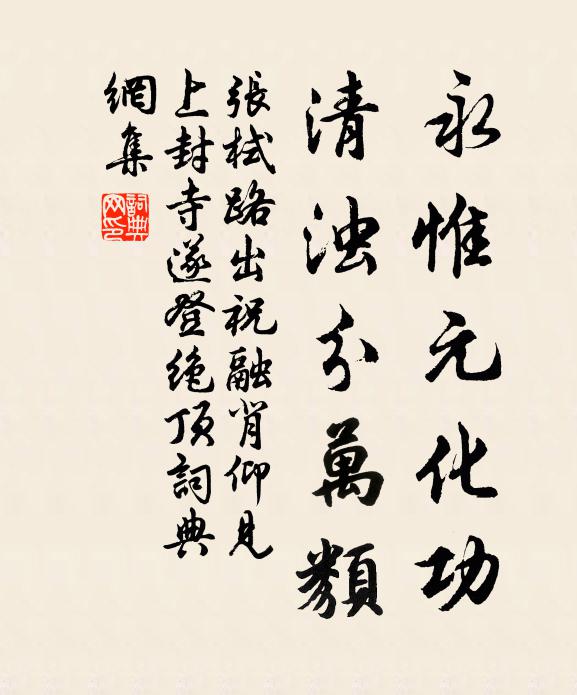 永惟元化功
清浊分萬類
張栻路出祝融肖仰見
上封寺遂登绝顶詞典
網集
詞典
网印